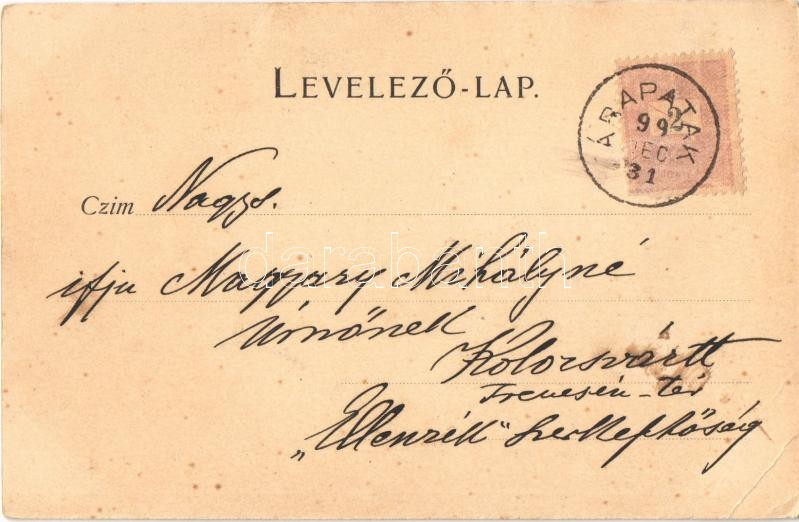 LEVELEZŐ-LAP.
ÁRAPATAK
99
DEC
31
2
Czim Nagys.
ifju Magyary Mihályné
Úrnőnek
Kolozsvártt
Trencsén-tér
„Ellenzék" Szerkesztőség
darabanth